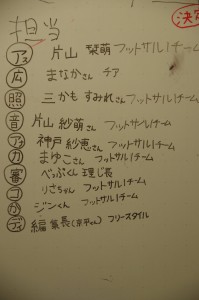 担当
決定
ア 片山 栞萌 フットサル1チーム
広 まなかさん チア
照 三かも すみれさん フットサル1チーム
音 片山 紗萌さん フットサル1チーム
ア 神戸 紗恵さん フットサル1チーム
カ まゆこさん フットサル1チーム
審 べっぷくん 理じ長
コ りさちゃん フットサル1チーム
か ジンくん フットサル1チーム
ディ 編集長(京平くん) フリースタイル